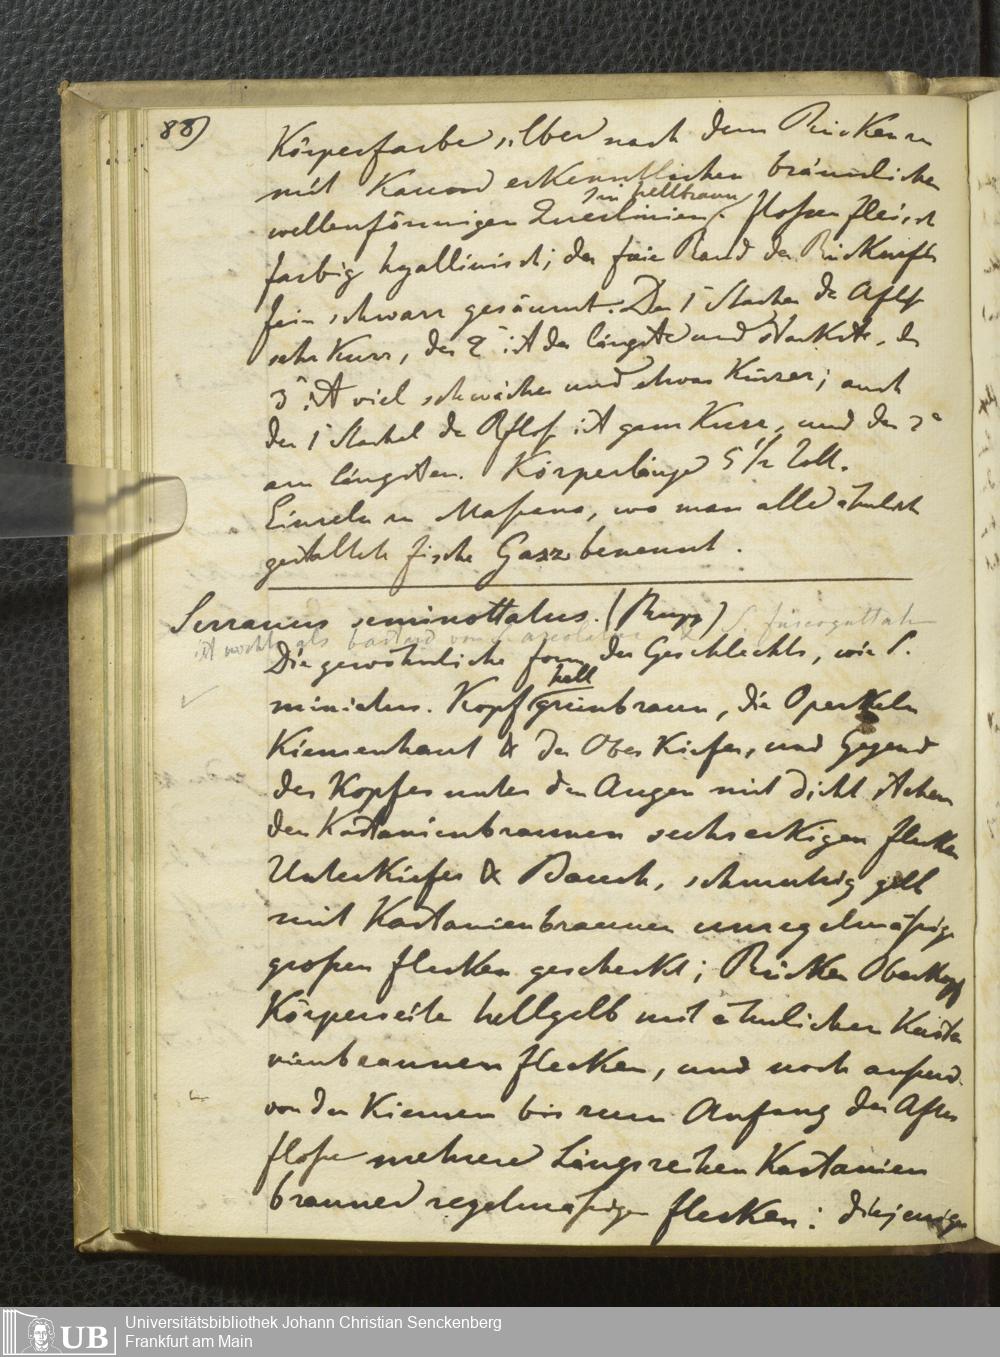 88)
Körperfarbe silber nach dem Rücken zu
mit kaum erkenntlichen bräunlichen
in hellbraun
wellenförmigen Querlinien. flossen fleisch
farbig hyallinisch; der freie Rand der Rückenfl
fein schwarz gesäumt. Der 1e Stachel der Aflss
sehr kurz, der 2e ist der längste und stärkste, der
3e ist viel schwächer und etwas kürzer; auch
der 1e Stachel der Rfloss ist ganz kurz, und der 3e
am längsten. Körperlänge 5 1/2 Zoll.
Einzeln zu Massaua, wo man alle ähnlich
gestaltete fische Gazz benennt.
Serranus seminottatus. (Rupp) S. fuscoguttatus
ist wohl als bastard von S. areolatus
Die gewöhnliche form des Geschlechts, wie S.
hell
miniatus. Kopf grünbraun, die Operkeln
Kiemenhaut & der Ober Kiefer, und Gegend
des Kopfes unter den Augen mit dicht stehen
den Kastanienbraunen sechseckigen flecken
Unterkiefer & Bauch, schmutzig gelb
mit Kastanienbraunen unregelmässig
grossen flecken gescheckt; Rücken Oberkopf
Körperseite hellgelb mit ähnlichen Kasta
nienbraunen flecken, und noch ausserd.
von den Kiemen bis zum Anfang der After
flosse mehrere Längsreihen Kastanien
brauner regelmässiger flecken: diejenigen
UB
Universitätsbibliothek Johann Christian Senckenberg
Frankfurt am Main